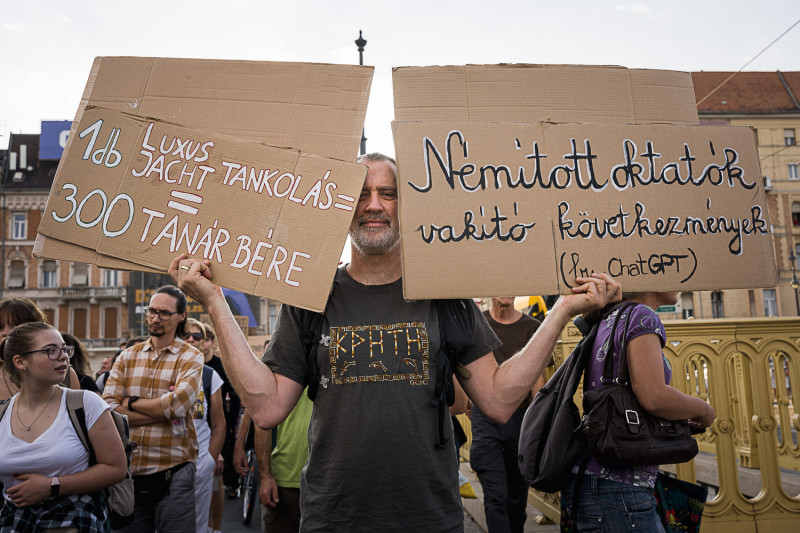 1db LUXUS
JACHT TANKOLÁS=
=
300 TANÁR BÉRE
Némított oktatók
vakító következmények
ChatGPT)
ΚΡΗΤΗ